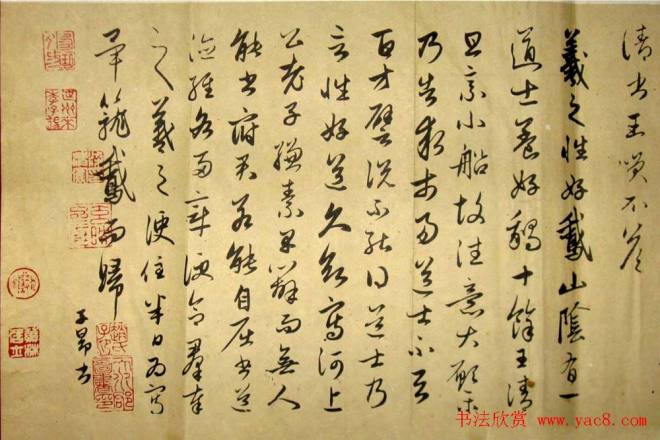 王 不
羲之性好鵞山陰有一
道士養好鵝十餘王清
旦乘小船故往意大願樂
乃告求市易道士不与
百方譬説不能得道士乃
言性好道久欲寫河上
公老子縑素早辦而無人
能書府君若能自屈書道
德經各兩章便合羣奉
之羲之便住半日為寫
畢籠鵞而歸
子昂書
书法欣赏 www.yac8.com